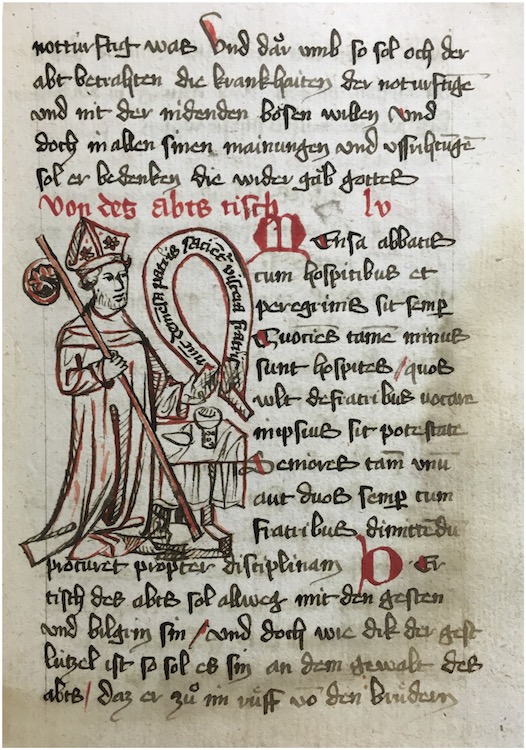 notturftig was Und dar umb so sol och der
abt betrahten die krankhaiten der noturftigē
vnd nit der nidenden bösen willen vnd
doch in allen sinen mainungen vnd vssrihtūgē
sol er bedenken die wider gāb gottes
von des abts tisch lv
Mensa abbatis
cum hospitibus et
peregrinis sit semp̄
Quocies tamē minus
sunt hospites / quos
vult de fratribus vocare
in ipsius sit potestate
Seniores tam̄ unū
aut duos semp̄ cum
fratribus dimittēdū
procuret propter disciplinam Der
tisch des abts sol allweg mit den gesten
vnd bilgrin sin / vnd doch wie dik der gest
lützel ist so sol es sin an dem gewalt des
abts / daz er zů im rüff vō den brůdern